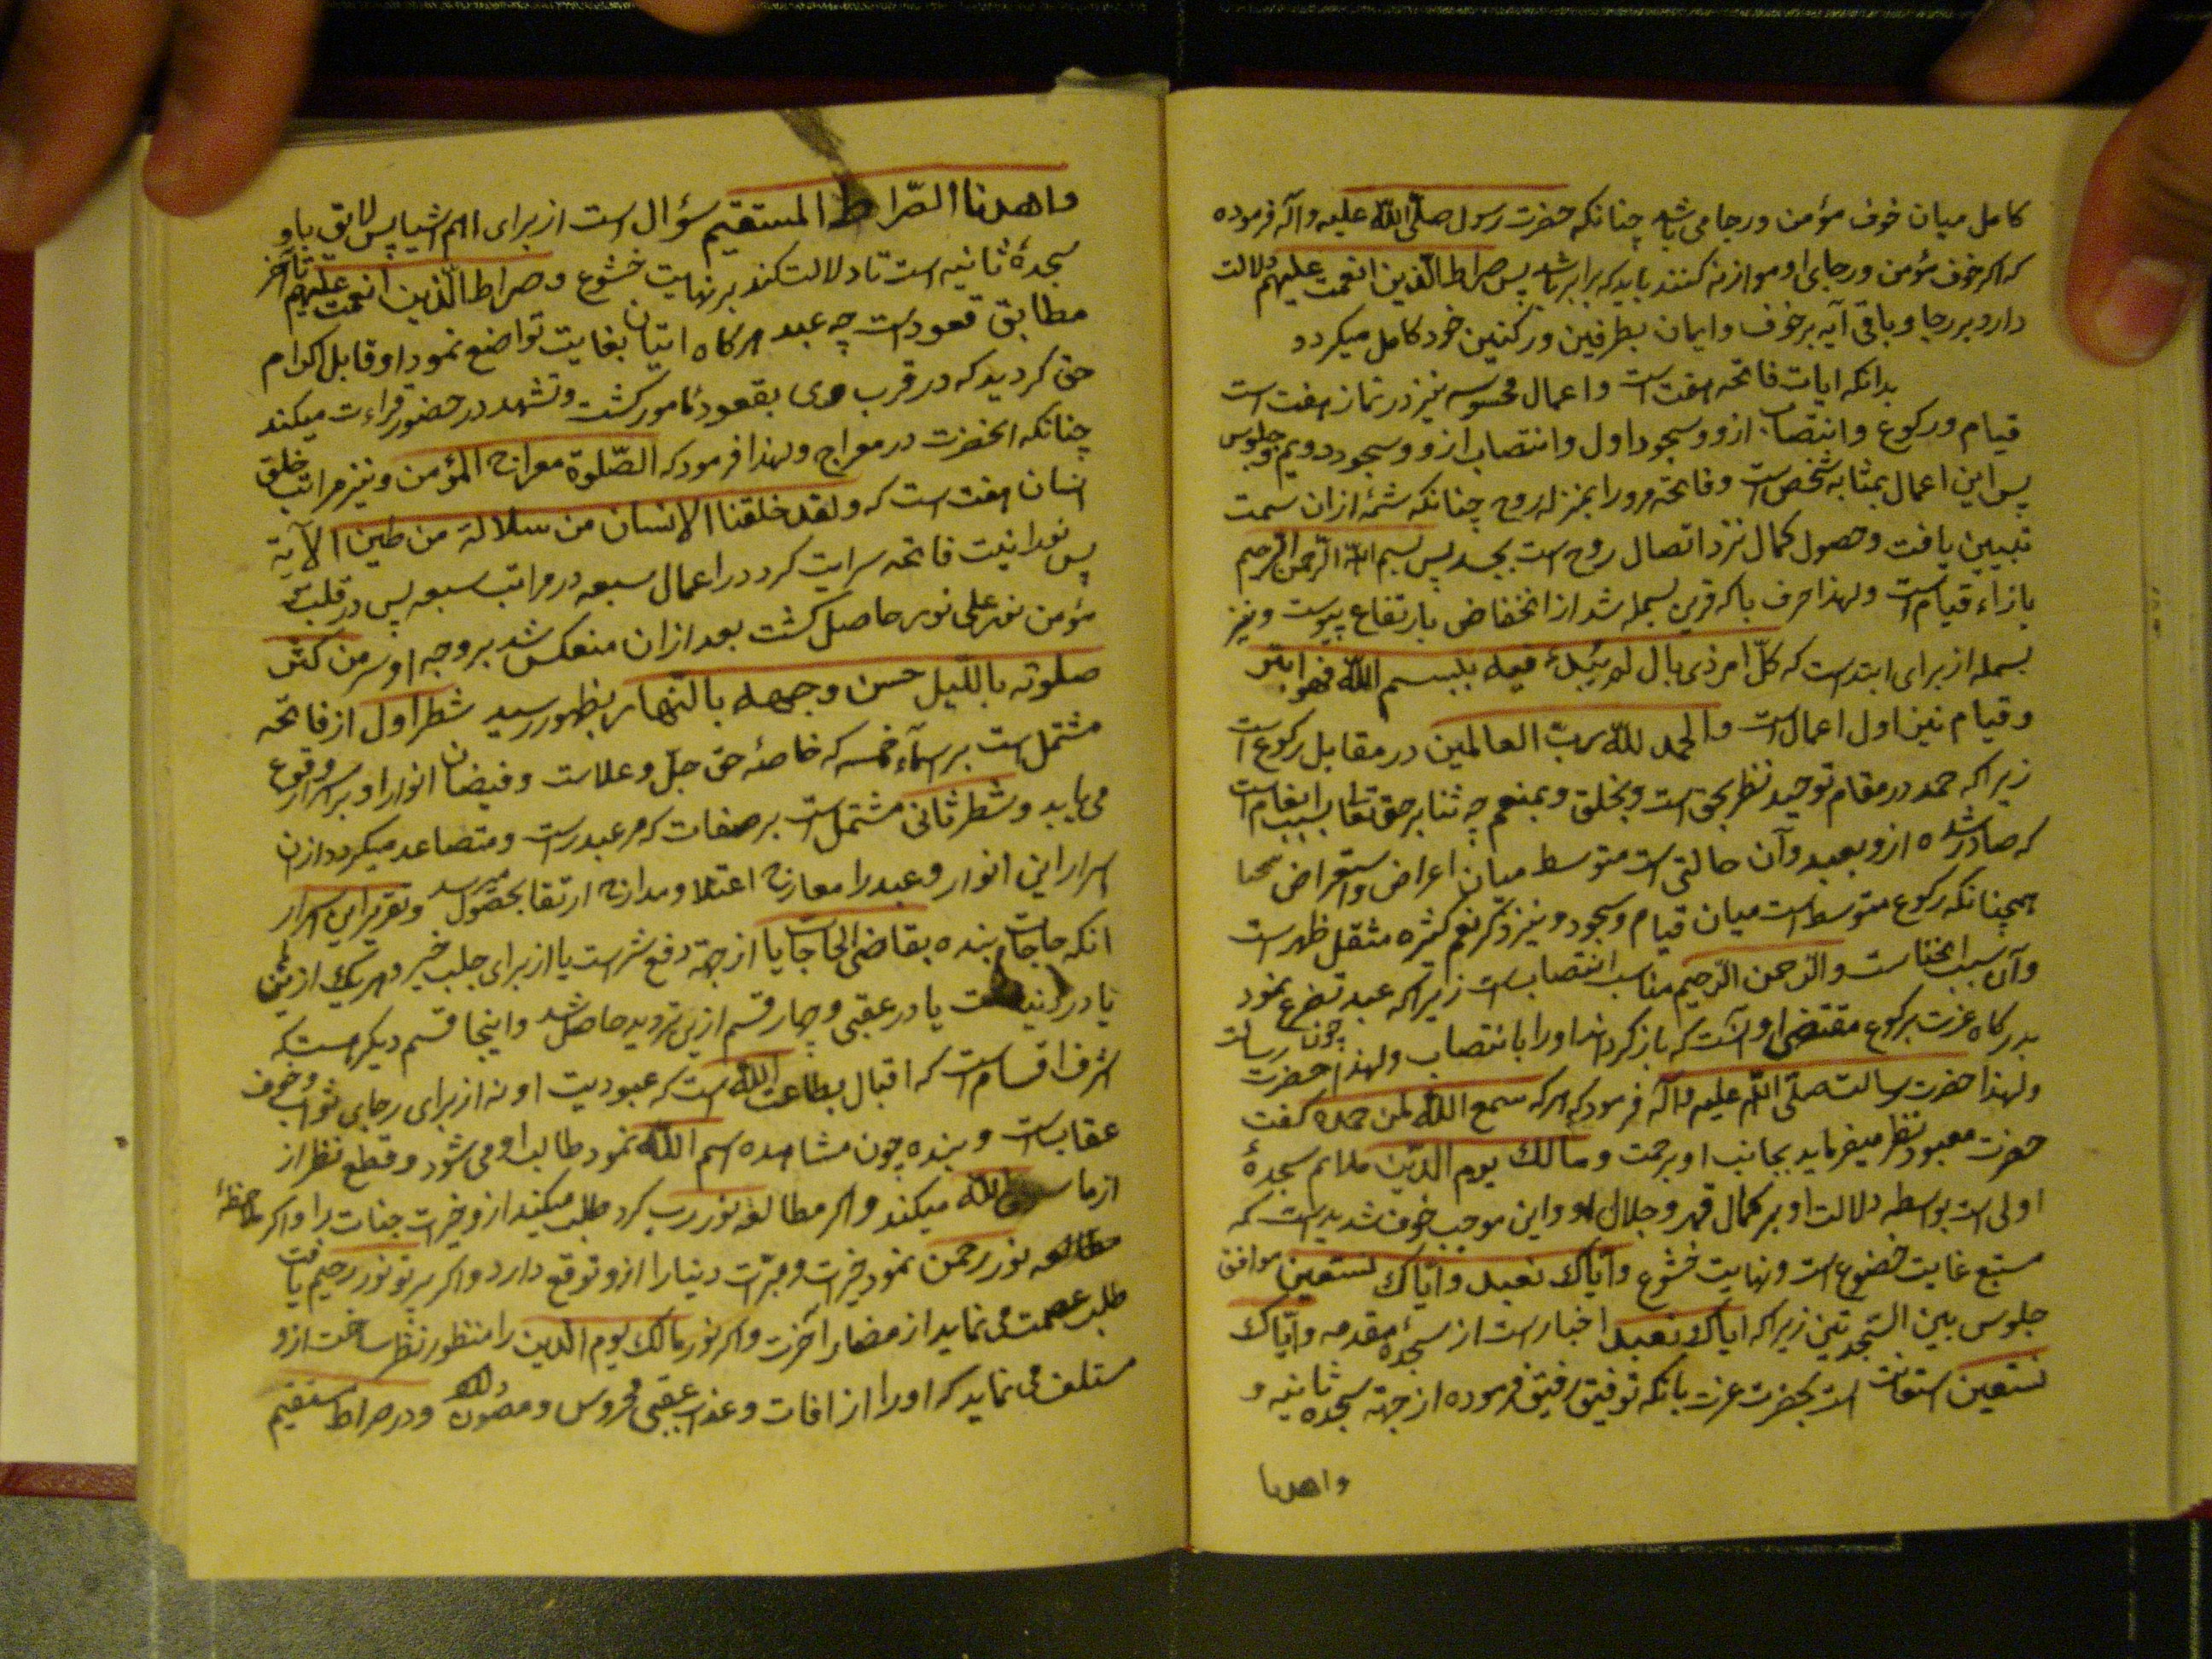 کامل میان خوف مؤمن و رجا می باشد چنانکه حضرت رسول صلّی اللّه علیه و آله فرموده
که اکر خوف مؤمن و رجای او موازنه کنند باید که برابر باشد پس صراط الّذین انعمت علیهم دلالت
دارد بر رجا و باقی آیه بر خوف و ایمان بطرفین و رکنین خود کامل میکردد
بدانکه ایات فاتحه هفت است و اعمال محسوسه نیز در نماز هفت است
قیام و رکوع و انتصاب ازو و سجود اول و انتصاب ازو و سجود دویم و جلوس
پس این اعمال بمثابه شخص است و فاتحه مرورا بمنزله روح چنانکه شمهٔ ازان سمت
تبیین یافت و حصول کمال نزد اتصال روح است بجسد پس بسم اللّه الرّحمن الرّحیم
بازاء قیام است ولهذا حرف با که قرین بسمله شد از انخفاض بارتفاع پیوست و نیز
بسمله از برای ابتد است که کلّ امر ذی بال لم یبدء فیه ببسم اللّه فهو ابتر
و قیام نیز اول اعمال است و الحمد للّه ربّ العالمین در مقابل رکوع است
زیرا که حمد در مقام توحید نظر بحق است و بخلق و بمنعم چه ثنا بر حق تعا بسبب انعام است
که صادر شده ازو بعبد وآن حالتی است متوسط میان اعراض و استغراض
همچنانکه رکوع متوسط است میان قیام و سجود و نیز ذکر نعم کثیره مثقل ظهر است
وآن سبب انحناست و الرّحمن الرّحیم مناسب انتصاب است زیرا که عبد تضرع نمود
بدرکاه عزت برکوع مقتضی او آنست که باز کرداند او را بانتصاب ولهذا حضرت رسالت
ولهذا حضرت رسالت صلّی اللّه علیه و آله فرمود که هر که سمع اللّه لمن حمده کفت
حضرت معبود نظر میفرماید بجانب او برحمت و مالک یوم الدّین ملائم سجدهٔ
اولی است بواسطه دلالت او بر کمال قهر و جلال او و این موجب خوف شدید است که
مستتبع غایت خضوع است و نهایت خشوع و ایّاک نعبد و ایّاک نستعین موافق
جلوس بین السّجدتین زیرا که ایاک نعبد اخبار است از سجدهٔ مقدمه و ایّاک
نستعین استعانت است بحضرت عزت بانکه توفیق رفیق فرموده از جهة سجده ثانیه و
واهدنا
واهدنا الصّراط المستقیم سؤال است از برای اهم اشیا پس لایق باو
سجدهٔ ثانیه است تا دلالت کند بر نهایت خشوع و صراط الّذین انعمت علیهم تا آخر
مطابق قعود است چه عبد هرکاه اتیان بغایت تواضع نمود او قابل اکرام
حق کردید که در قرب وی بقعود مأمور کشت و تشهد در حضور قراءت میکند
چنانکه انحضرت در معراج ولهذا فرمود که الصّلوة معراج المؤمن و نیز مراتب خلق
انسان هفت است که ولقد خلقنا الإنسان من سلالة من طین الآیة
پس نورانیت فاتحه سرایت کرد در اعمال سبعه در مراتب سبعه پس در قلب
مؤمن نور علی نور حاصل کشت بعد ازان منعکس شد بر وجه او سرّ من کثر
صلوته باللّیل حسن وجهه بالنّهار بظهور رسید شطر اول از فاتحه
مشتمل است بر اسمآء خمسه که خاصهٔ حق جلّ وعلاست و فیضان انوار او بر اسرار وقوع
می یابد و شطر ثانی مشتمل است بر صفات که مر عبدراست و متصاعد میکردد ازان
اسرار این انوار و عبد را معارج اعتلا و مدارج ارتقا بحصول میرسد و تقریر این اسرار
انکه حاجات بنده بقاضی الحاجات یا از جهة دفع شر است یا از برای جلب خیر و هریک ازین
یا در دنیاست یا در عقبی و چهار قسم ازین تردید حاصل شد و اینجا قسم دیکر هست که
اشرف اقسام است که اقبال بطاعت اللّه است که عبودیت او نه از برای رجای ثواب و خوف
عقابست و بنده چون مشاهده اسم اللّه نمود طالب او می شود و قطع نظر از
از ما سوی اللّه میکند و اکر مطالعه نور رب کرد طلب میکند ازو خیرات جنات را و اکر ملاحظهٔ
مطالعه نور رحمن نمود خیرات و مبرّت دنیا را ازو توقع دارد و اکر پرتو نور رحیم یافت
طلب عصمت می نماید از مضار آخرت و اکر نور مالک یوم الدین را منظور نظر ساخت ازو
می نماید که او را از افات و عذاب عقبی محروس و مصون دارد و در صراط مستقیم